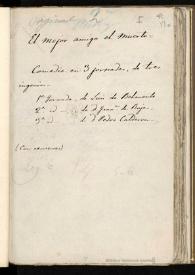 El mejor amigo el muerto.
Comedia en 3 jornadas, de tres
ingenios.
1ª Jornada, de Luis de Belmonte
2ª id de Dn Franco de Rojas
3ª id de Dn Pedro Calderon
(Con censuras)